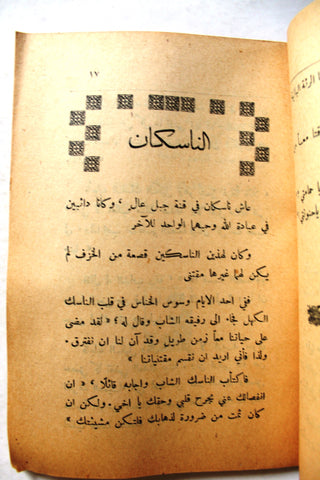 ١٧
الناسكان
عاش ناسكان في قنة جبل عال ، وكانا دائبين
في عبادة الله وحبهما الواحد للآخر
وكان لهذين الناسكين قصعة من الخزف لم
يكن لهما غيرها مقتنى
ففي احد الايام وسوس الخناس في قلب الناسك
الكهل فجاء الى رفيقه الشاب وقال له : « لقد مضى
على حياتنا معاً زمن طويل وقد آن لنا ان نفترق .
ولذا فأني اريد ان نقسم مقتنياتنا »
فاكتأب الناسك الشاب واجابه قائلا : « ان
انفصالك عني يجرح قلبي وحقك يا اخي . ولكن ان
كان ثمت من ضرورة لذهابك فلتكن مشيئتك »